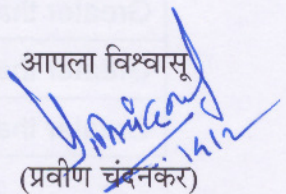 आपला विश्वासू
(प्रवीण चंदनकर)